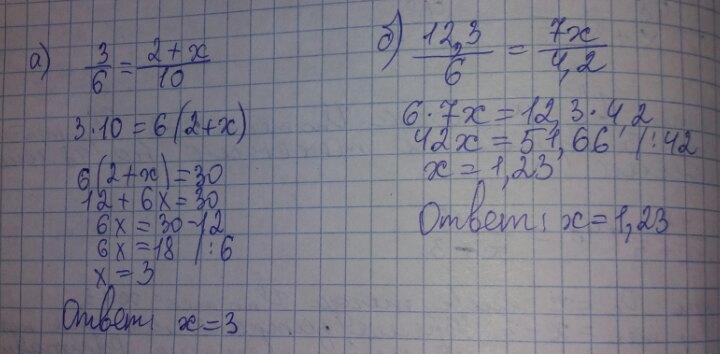 а) 3/6 = 2+x/10
3·10=6(2+x)
6(2+x)=30
12+6x=30
6x=30-12
6x=18 /:6
x=3
Ответ: x=3
б) 12,3/6 = 7x/4,2
6·7x=12,3·4,2
42x=51,66 /:42
x=1,23
Ответ: x=1,23